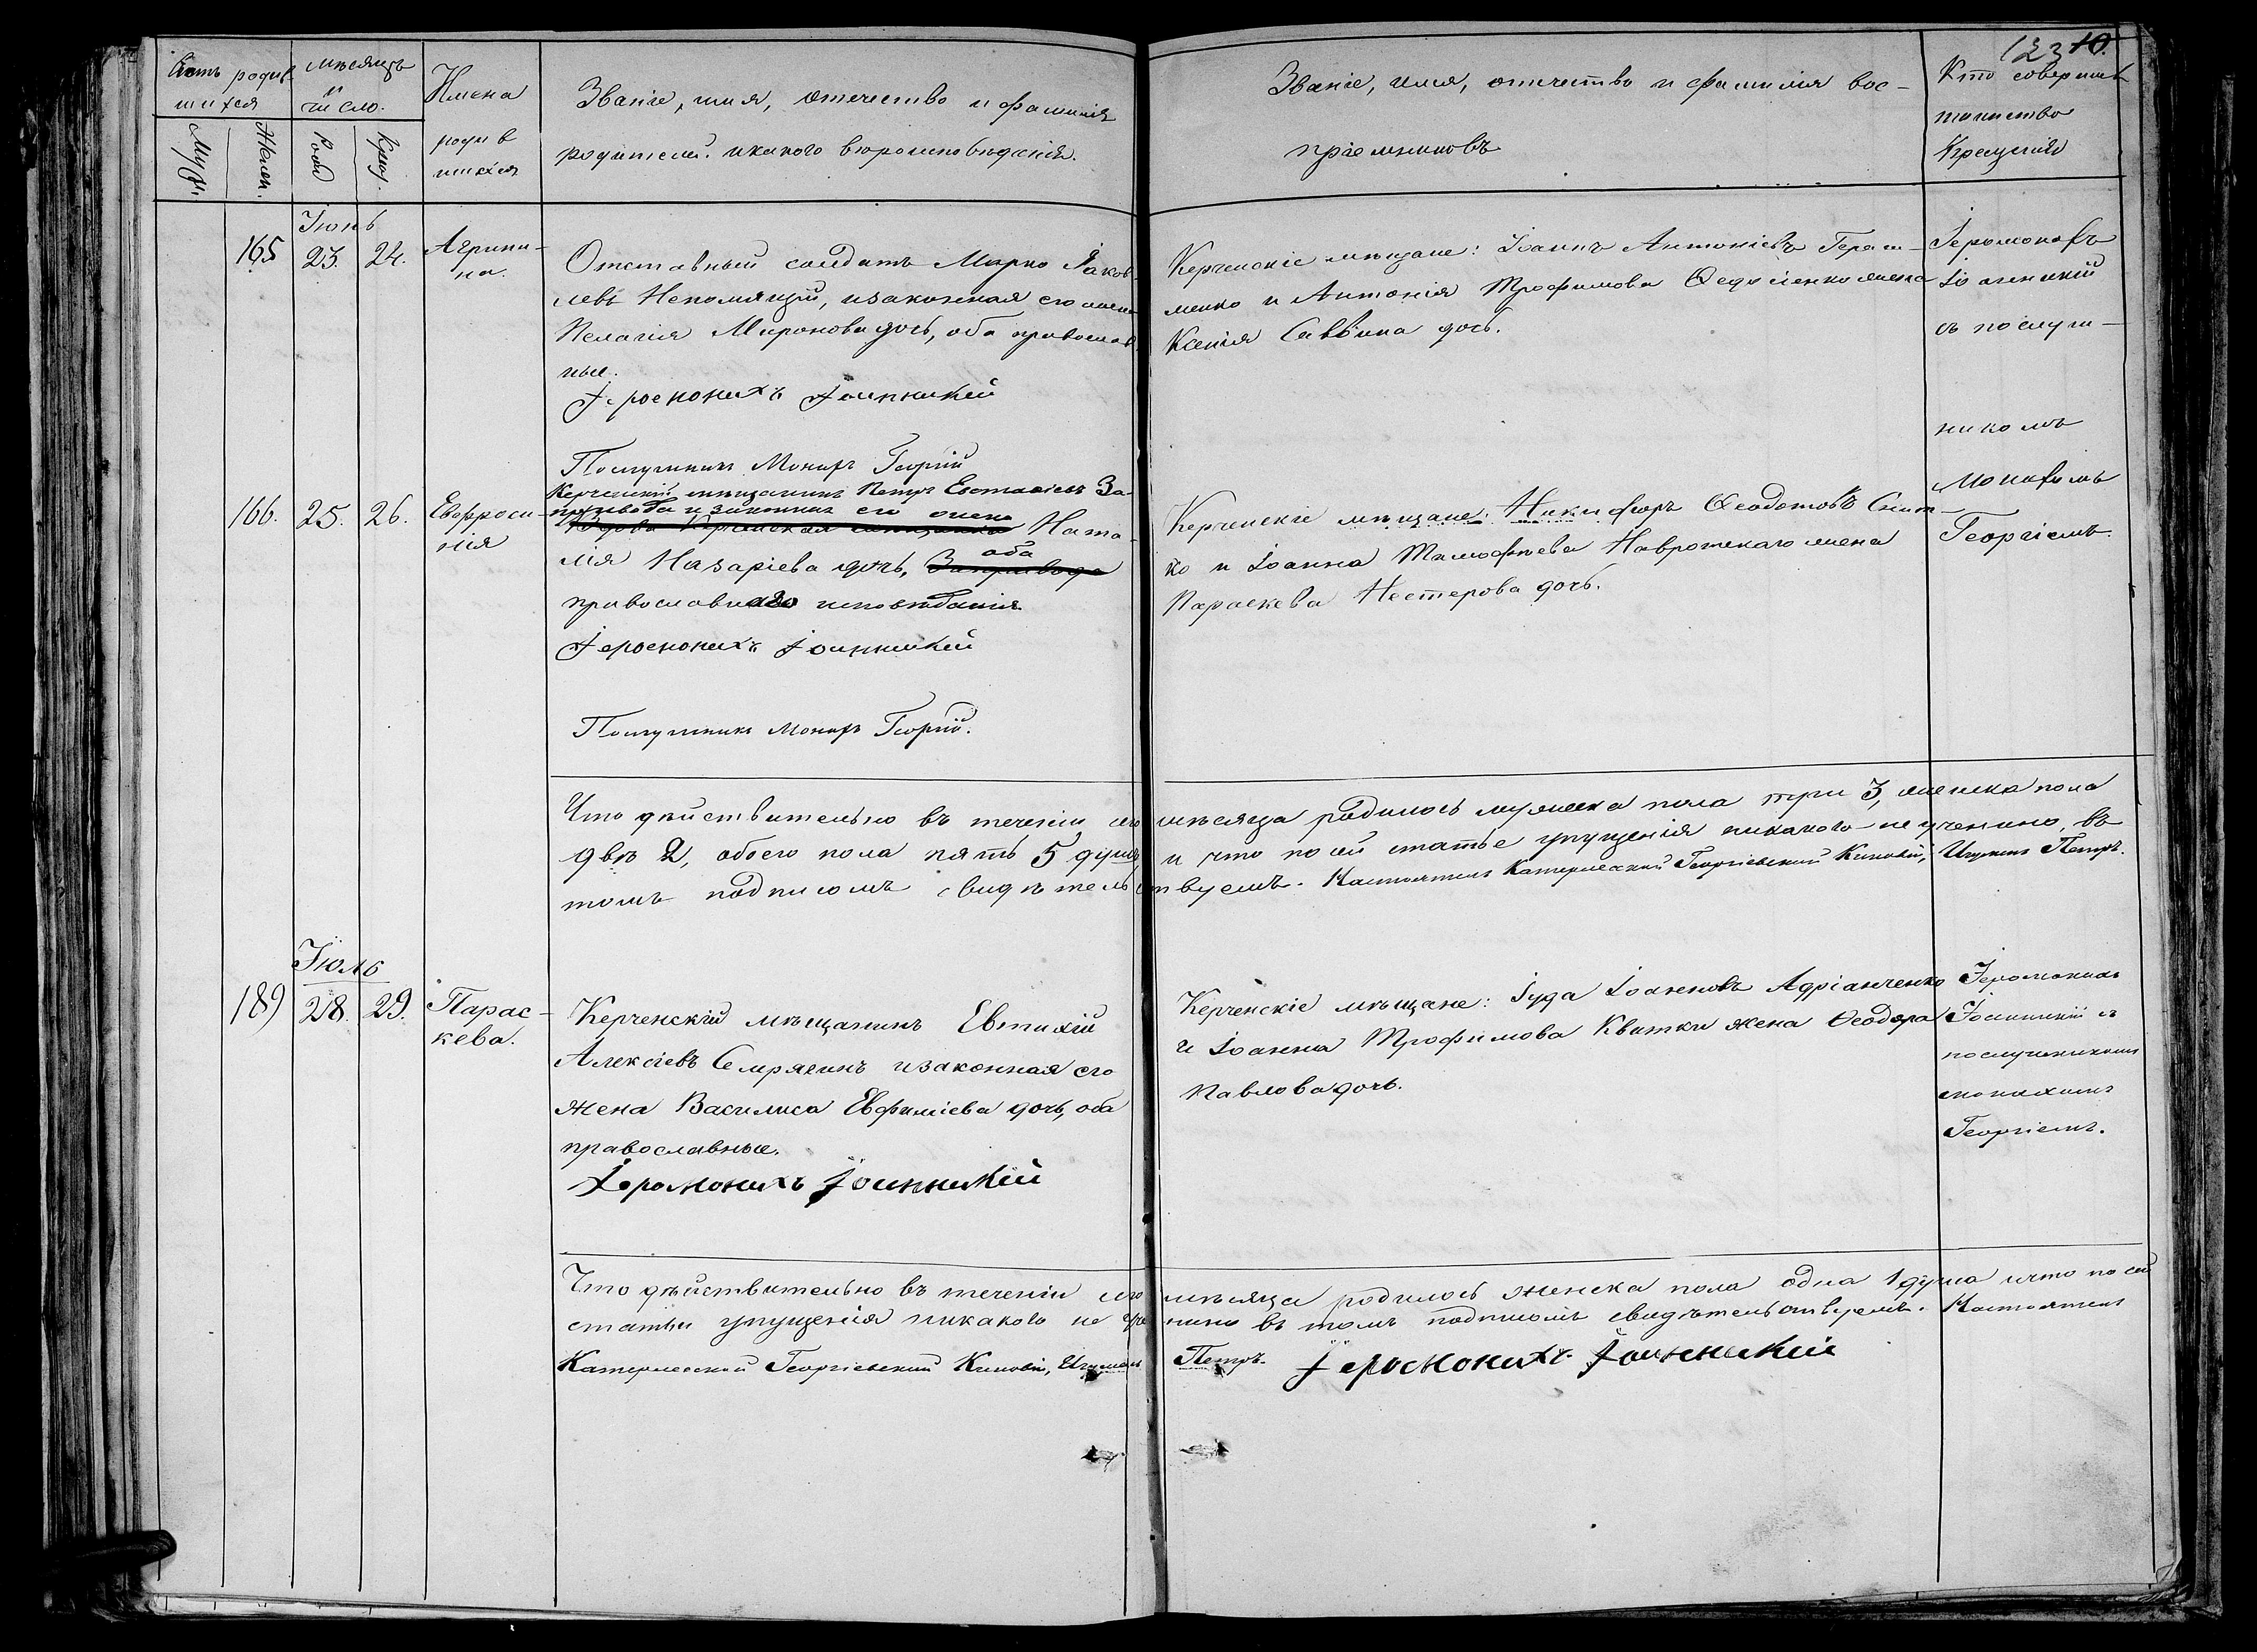 123 10.
Счетъ родив-
шихся
Муж.
Женск.
мѣсяцъ
и
число.
Рожд
Крещ.
Имена
родив
шихся
Званіе, имя, отечество и фамилія
родителей. икакого вѣроисповѣданія.
Званіе, имя, отечество и фамилія вос-
пріемниковъ
Кто соверши
таинство
Крещенія
Іюнь
165 23. 24. Агрипи-
на.
Отставный солдатъ Марко Яков-
левъ Непомящій, изаконная его жена
Пелагія Миронова дочь, оба православ-
ные.
Іеромонахъ Іоанникій
Послушникъ Монахъ Георгій
Керченскіе мѣщане: Іоаннъ Антоніевъ Гераси-
менко и Антонія Трофимова Ѳедосіенко жена
Ксенія Саввина дочь.
Іеромонахъ
Іоанникій
съ послуш-
никомъ
Монахомъ
Георгіемъ.
166. 25. 26. Евфроси-
нія
Керченскій мѣщанинъ Петръ Евстафіевъ За-
привода и законная его жена
Вдова Керченская мѣщанка Ната-
лія Назаріева дочь, Запривода оба
православнаго исповѣданія
Іеромонахъ Іоанникій
Послушникъ Монахъ Георгій.
Керченскіе мѣщане: Никифоръ Ѳеодотовъ Снит-
ко и Іоанна Тимофѣева Навротскаго жена
Параскева Нестерова дочь.
Что дѣйствительно въ теченіи сего мѣсяца родилось мужеска пола три 3, женска пола
двѣ 2, обоего пола пять 5 душъ, и что по сей статье упущенія никакого не учинено, въ
томъ подписомъ свидѣтельствуемъ. Настоятель Катерлесской Георгіевский Киновіи, Игуменъ Петръ.
Іюль
189 28. 29. Парас-
кева.
Керченскій мѣщанинъ Евтихій
Алексіевъ Семрягинъ изаконная его
жена Василиса Евфиміева дочь, оба
православные.
Іеромонахъ Іоанникій
Керченскіе мѣщане: Іуда Іоанновъ Адріанченко
и Іоанна Трофимова Квитки жена Ѳеодора
Павлова дочь.
Іеромонахъ
Іоанникій съ
послушникомъ
монахомъ
Георгіемъ.
Что дѣйствительно въ теченіи сего мѣсяца родилось женска пола одна 1 душа ичто по сей
статьи упущенія никакого не учинено въ томъ подписомъ свидѣтельствуемъ. Настоятель
Катерлесской Георгіевский Киновіи, Игуменъ Петръ. Іеромонахъ Іоанникій